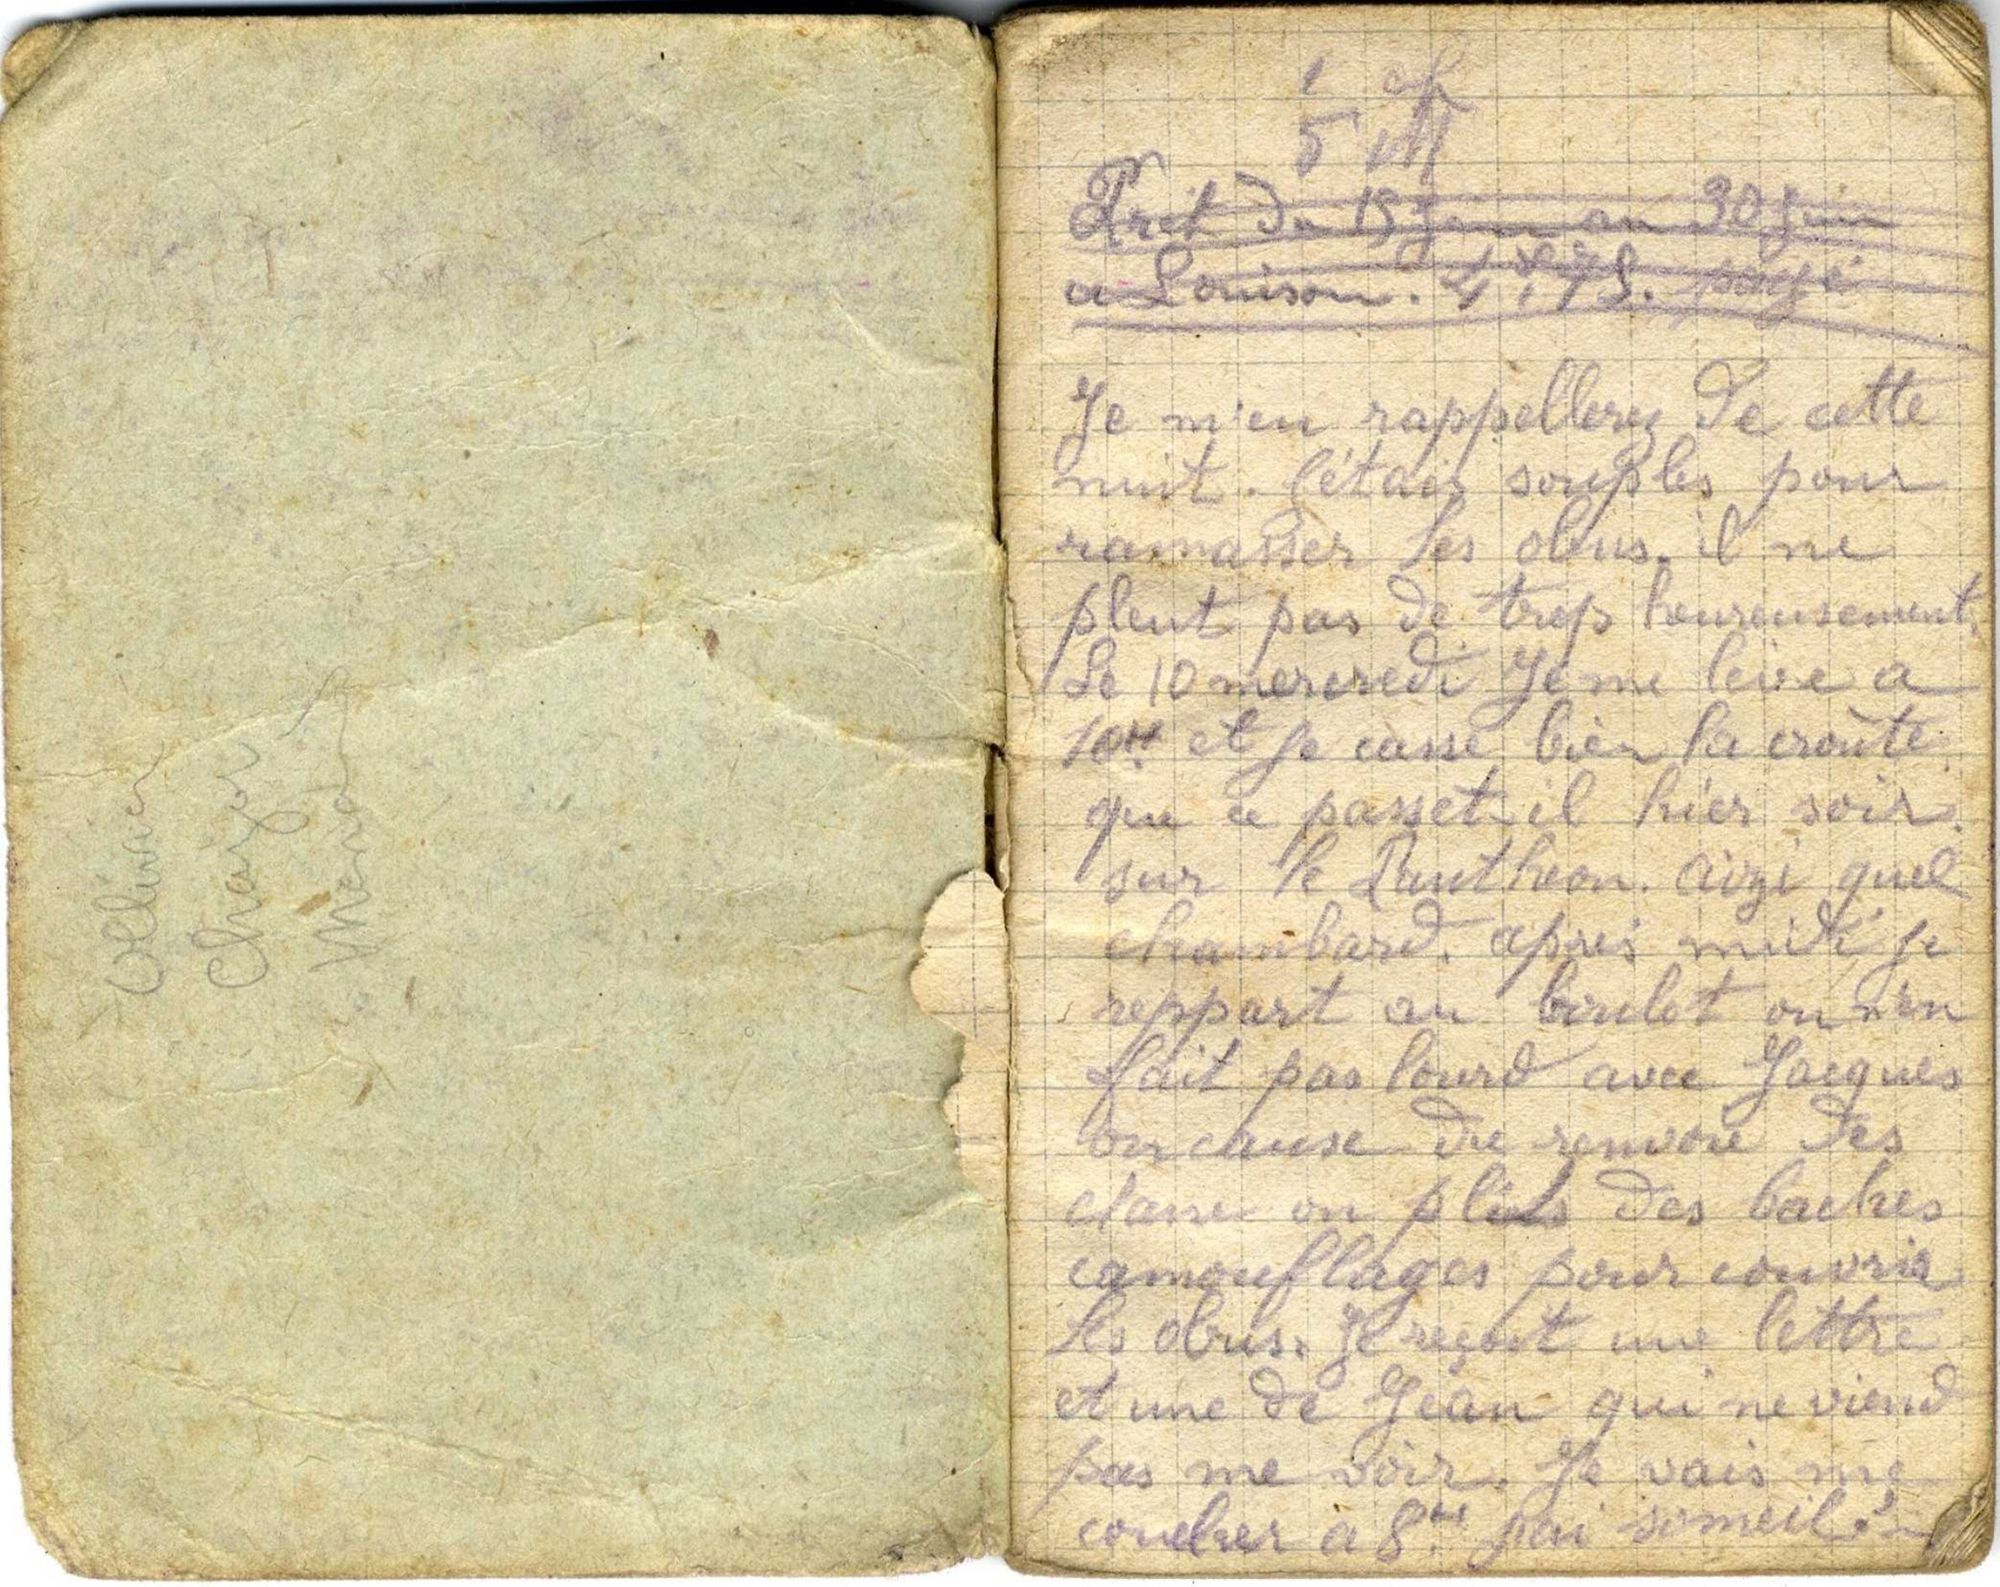 Ollivier
Chazot
5
Prêt du 15 Juin au 30 Juin
a Louison. 4 75. payé
Je m'en rappellerez de cette
nuit. C'étais souples pour
ramasser les obus. il ne
pleut pas de trop heureusement.
Le 10 mercredi Je me lève a
10H et je casse bien la croûte
que ce passet-il hier soir
sur le Pantheon. aizi quel
chambard. après midi je
reppart au boulot on n'en
fait pas lourd avec Jacques
on cause du renvoie des
classe on plies des baches
camouflages pour couvrir
les obus. Je reçoit une lettre
et une de Jean qui ne viend
pas me voir. Je vais me
coucher a 8H. j'ai someil